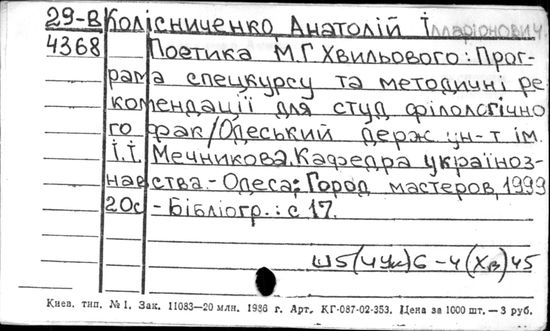 29-В Колісниченко, Анатолій Ілларіонович.
4368 Поетика М.Г. Хвильового: Прог-
рама спецкурсу та методичні ре
комендації для студ філологічно
го фак/Одеський держ ун-т ім.
І.І. Мечникова. Кафедра українoз-
навства.-Одеса: Город мастеров, 1999
20с -Бібліогр.: с 17.
Ш5(4Ук)6-4(Хв)45
Киев. тип. № 1. Зак. 11083—20 млн. 1986 г. Арт. КГ-087-02-353. Цена за 1000 шт. — 3 руб.